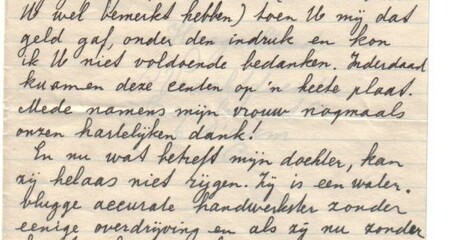 U wel bemerkt hebben) toen U mij dat
geld gaf, onder den indruk en kon
ik U niet voldoende bedanken. Inderdaad
kwamen deze centen op 'n heete plaat.
Mede namens mijn vrouw nogmaals
onzen hartelijken dank!
En nu wat betreft mijn dochter, kan
zij helaas niet rijgen. Zij is een water-
vlugge accurate handwerkster zonder
eenige overdrijving en als zij nu zonder